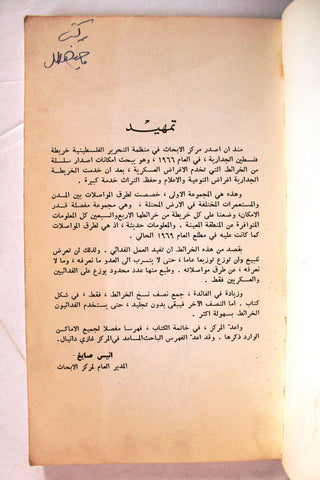 تمهيد
منذ ان اصدر مركز الابحاث في منظمة التحرير الفلسطينية خريطة
فلسطين الجدارية ، في العام ١٩٦٦ ، وهو يبحث امكانات اصدار سلسلة
من الخرائط التي تخدم الاغراض العسكرية ، بعد ان خدمت الخريطة
الجدارية اغراض التوعية والاعلام وحفظ التراث خدمة كبيرة .
وهذه هي المجموعة الاولى ، خصصت لطرق المواصلات بين المدن
والمستعمرات المختلفة في الارض المحتلة . وهي مجموعة مفصلة قدر
الامكان، وضعنا على كل خريطة من خرائطها الاربع والسبعين كل المعلومات
المتوافرة عن المنطقة المعينة . والمعلومات حديثة ، اذ هي لطرق المواصلات
كما كانت عليه في مطلع العام ١٩٦٩ الحالي .
يقصد من هذه الخرائط ان تفيد العمل الفدائي . ولذلك لن تعرض
للبيع ولن توزع توزيعا عاما ، حتى لا يتسرب الى العدو ما نعرفه ، وما لا
نعرفه ، عن طرق مواصلاته . وطبع منها عدد محدود يوزع على الفدائيين
والعسكريين فقط .
وزيادة في الفائدة ، جمع نصف نسخ الخرائط ، فقط ، في شكل
كتاب . اما النصف الآخر فيبقى بدون تجليد ، حتى يستخدم مستخدمو
الخرائط بسهولة اكثر .
واعد المركز ، في خاتمة الكتاب ، فهرسا مفصلا لجميع الاماكن
الوارد ذكرها . وقد اعد الفهرس الباحث المساعد في المركز غازي دانيال.
انيس صايغ
المدير العام لمركز الابحاث